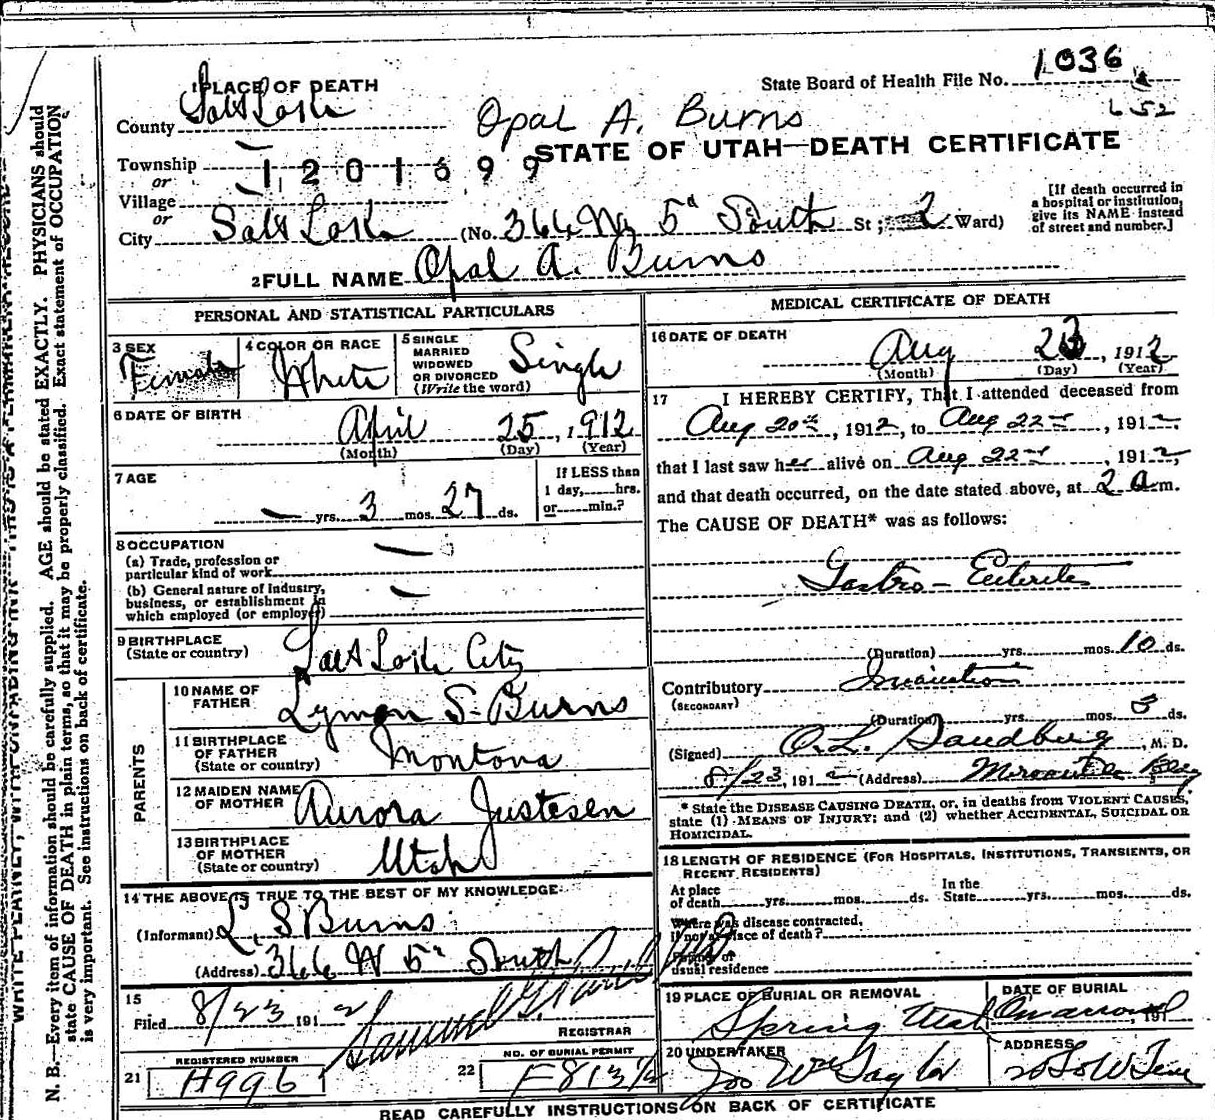 1 PLACE OF DEATH
State Board of Health File No. 1036
652
County Salt Lake
Opal A. Burns
STATE OF UTAH—DEATH CERTIFICATE
Township
or
1201699
Village
or
City Salt Lake (No. 366 W 5" South St; 2 Ward)
[If death occurred in
a hospital or institution,
give its NAME instead
of street and number.]
2 FULL NAME Opal A. Burns
PERSONAL AND STATISTICAL PARTICULARS
3 SEX
Female
4 COLOR OR RACE
White
5 SINGLE
MARRIED
WIDOWED
OR DIVORCED
(Write the word)
Single
6 DATE OF BIRTH
April 25, 1912
(Month) (Day) (Year)
7 AGE
— yrs. 3 mos. 27 ds.
If LESS than
1 day, hrs.
or min.?
8 OCCUPATION
(a) Trade, profession or
particular kind of work —
(b) General nature of industry,
business, or establishment in
which employed (or employer) —
9 BIRTHPLACE
(State or country)
Salt Lake City
PARENTS
10 NAME OF
FATHER
Lyman S. Burns
11 BIRTHPLACE
OF FATHER
(State or country)
Montana
12 MAIDEN NAME
OF MOTHER
Aurora Justesen
13 BIRTHPLACE
OF MOTHER
(State or country)
Utah
14 THE ABOVE IS TRUE TO THE BEST OF MY KNOWLEDGE
(Informant) L. S Burns
(Address) 366 W 5" South
15
Filed 8/23 1912
Samuel G.
REGISTRAR
REGISTERED NUMBER
21 H996
NO. OF BURIAL PERMIT
22
MEDICAL CERTIFICATE OF DEATH
16 DATE OF DEATH
Aug 23, 1912
(Month) (Day) (Year)
17 I HEREBY CERTIFY, That I attended deceased from
Aug 20th, 1912, to Aug 22nd, 1912,
that I last saw her alive on Aug 22nd, 1912,
and that death occurred, on the date stated above, at 2 a m.
The CAUSE OF DEATH* was as follows:
Gastro-Enteritis
(Duration) yrs. mos. 10 ds.
Contributory Inanition
(SECONDARY)
(Duration) yrs. mos. 3 ds.
(Signed) O. L. Sandberg, M. D.
8/23, 1912 (Address) Mercantile Bldg
* State the DISEASE CAUSING DEATH, or, in deaths from VIOLENT CAUSES,
state (1) MEANS OF INJURY; and (2) whether ACCIDENTAL, SUICIDAL OR
HOMICIDAL.
18 LENGTH OF RESIDENCE (FOR HOSPITALS, INSTITUTIONS, TRANSIENTS, OR
RECENT RESIDENTS)
At place
of death yrs. mos. ds.
In the
State yrs. mos. ds.
Where was disease contracted,
if not at place of death?
Former or
usual residence
19 PLACE OF BURIAL OR REMOVAL
Spring Utah
DATE OF BURIAL
191
20 UNDERTAKER
Jos Wm Taylor
ADDRESS
READ CAREFULLY INSTRUCTIONS ON BACK OF CERTIFICATE
N. B.—Every item of information should be carefully supplied. AGE should be stated EXACTLY. PHYSICIANS should
state CAUSE OF DEATH in plain terms, so that it may be properly classified. Exact statement of OCCUPATION
is very important. See instructions on back of certificate.